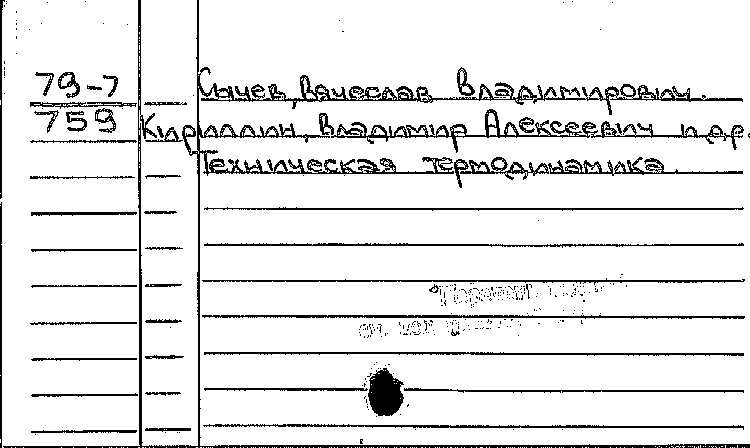 79-7 Сычев, Вячеслав Владимирович.
759 Кириллин, Владимир Алексеевич и др.
Техническая термодинамика.